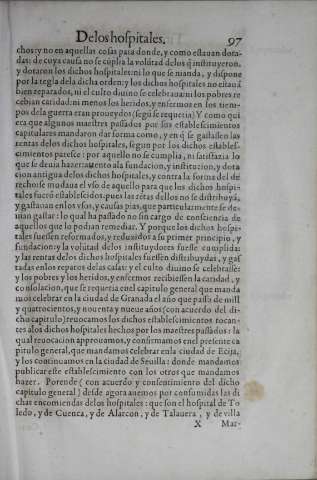 De los hospitales. 97
chos: y no en aquellas cosas para donde, y como estauan dota-
das: de cuya causa no se cūplia la volūtad delos q̄ instituyeron,
y dotaron los dichos hospitales: ni lo que se manda, y dispone
por la regla dela dicha orden: y los dichos hospitales no estauā
bien reparados, ni el culto diuino se celebraua: ni los pobres re
cebian caridad: ni menos los heridos, y enfermos en los tiem-
pos dela guerra eran proueydos (segū se requeria) Y como qui
era que algunos maestres passados por sus establescimientos
capitulares mandaron dar forma como, y en q̄ se gastassen las
rentas delos dichos hospitales, segun por los dichos establef-
cimientos paresce: por aquello no se cumplia, ni satisfazia lo
que se deuia hazer tagento ala fundacion, y institucion, y dota
cion antigua delos dichos hospitales, y contra la forma del de
recho se mudaua el vso de aquello para que los dichos hospi-
tales fuerō establescidos. pues las rētas dellos no se distribuyā,
y gastauan en los vsos, y causas pias, que particularmente se de-
uian gastar: lo qual ha passado no sin cargo de consciencia de
aquellos que lo podian remediar. Y porque los dichos hospi-
tales fuessen reformados, y reduzidos a su primer principio, y
fundacion: y la volūtad delos instituydores fuesse cumplida:
y las rentas delos dichos hospitales fuessen distribuydas, y gas
tadas enlos reparos delas casas: y el culto diuino se celebrasse:
y los pobres y los heridos, y enfermos recibiessen la caridad, y
consolacion, que se requeria enel capitulo general que manda
mos celebrar en la ciudad de Granada el año que passo de mill
y quatrocientos, y nouenta y nueue años (con acuerdo del di-
cho capitulo) reuocamos los dichos establescimientos tocan-
tes alos dichos hospitales hechos por los maestres passados: la
qual reuocacion approuamos, y confirmamos enel presente ca
pitulo general, que mandamos celebrar enla ciudad de Ecija,
y los continuamos en la ciudad de Seuilla: donde mandamos
publicar este establescimiento con los otros que mandamos
hazer. Porende (con acuerdo y consentimiento del dicho
capitulo general) desde agora auemos por consumidas las di
chas encomiendas delos hospitales: que son el hospital de To
ledo, y de Cuenca, y de Alarcon, y de Talauera, y de villa
X Mar-